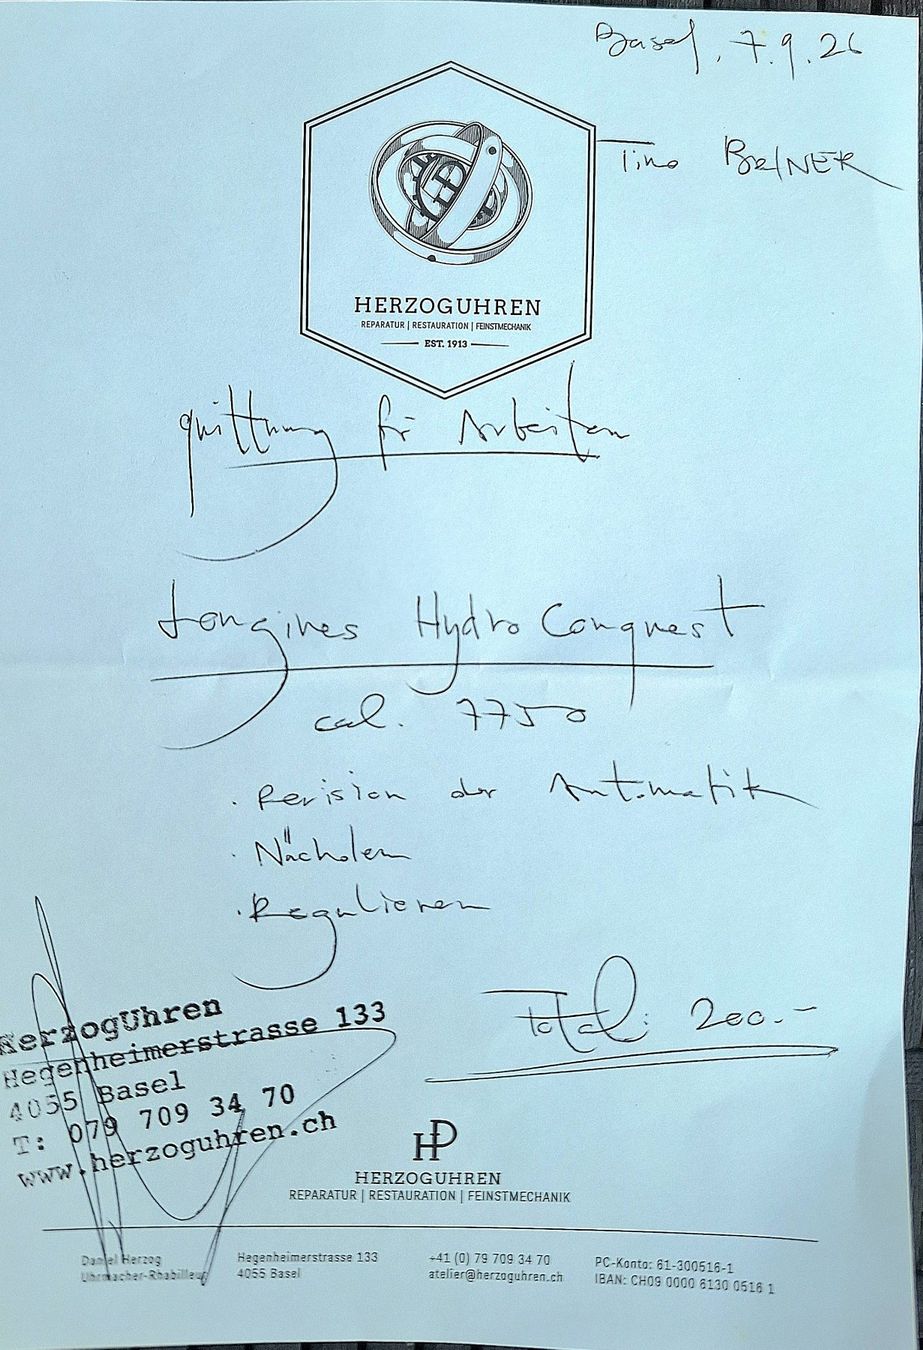 Basel, 7.9.26
Tino
HERZOGUHREN
REPARATUR | RESTAURATION | FEINSTMECHANIK
EST. 1913
quittung für Arbeiten
Longines HydroConquest
cal. 7750
· Revision der Automatik
· Nachölen
· Regulieren
Total: 200.-
HerzogUhren
Hegenheimerstrasse 133
4055 Basel
T: 079 709 34 70
www.herzoguhren.ch
HERZOGUHREN
REPARATUR | RESTAURATION | FEINSTMECHANIK
Daniel Herzog
Uhrmacher-Rhabilleur
Hegenheimerstrasse 133
4055 Basel
+41 (0) 79 709 34 70
atelier@herzoguhren.ch
PC-Konto: 61-300516-1
IBAN: CH09 0000 6130 0516 1